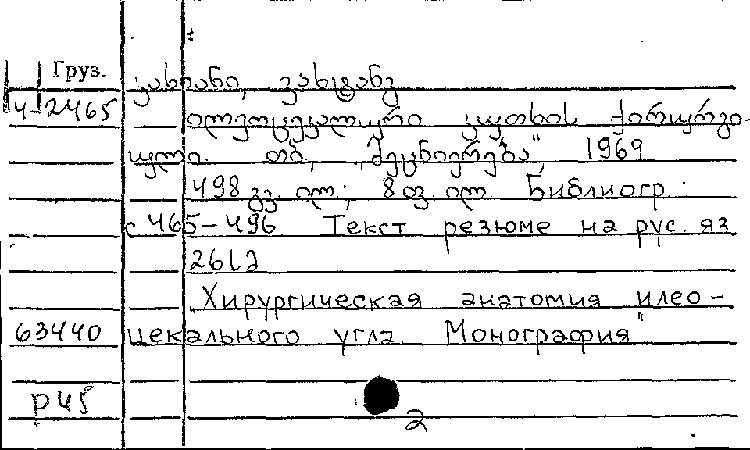 Груз. კახიანი, ვახტანგ
4-2465 ილეოცეკალური კუთხის ქირურგი-
ული თბ., „მეცნიერება", 1969
498 გვ. ილ.; 8 ფ. ილ Библиогр:
с 465-496 Текст резюме на рус. яз
261ა
Хирургическая анатомия илео-
63440 цекального угла. Монография"
Р45
2